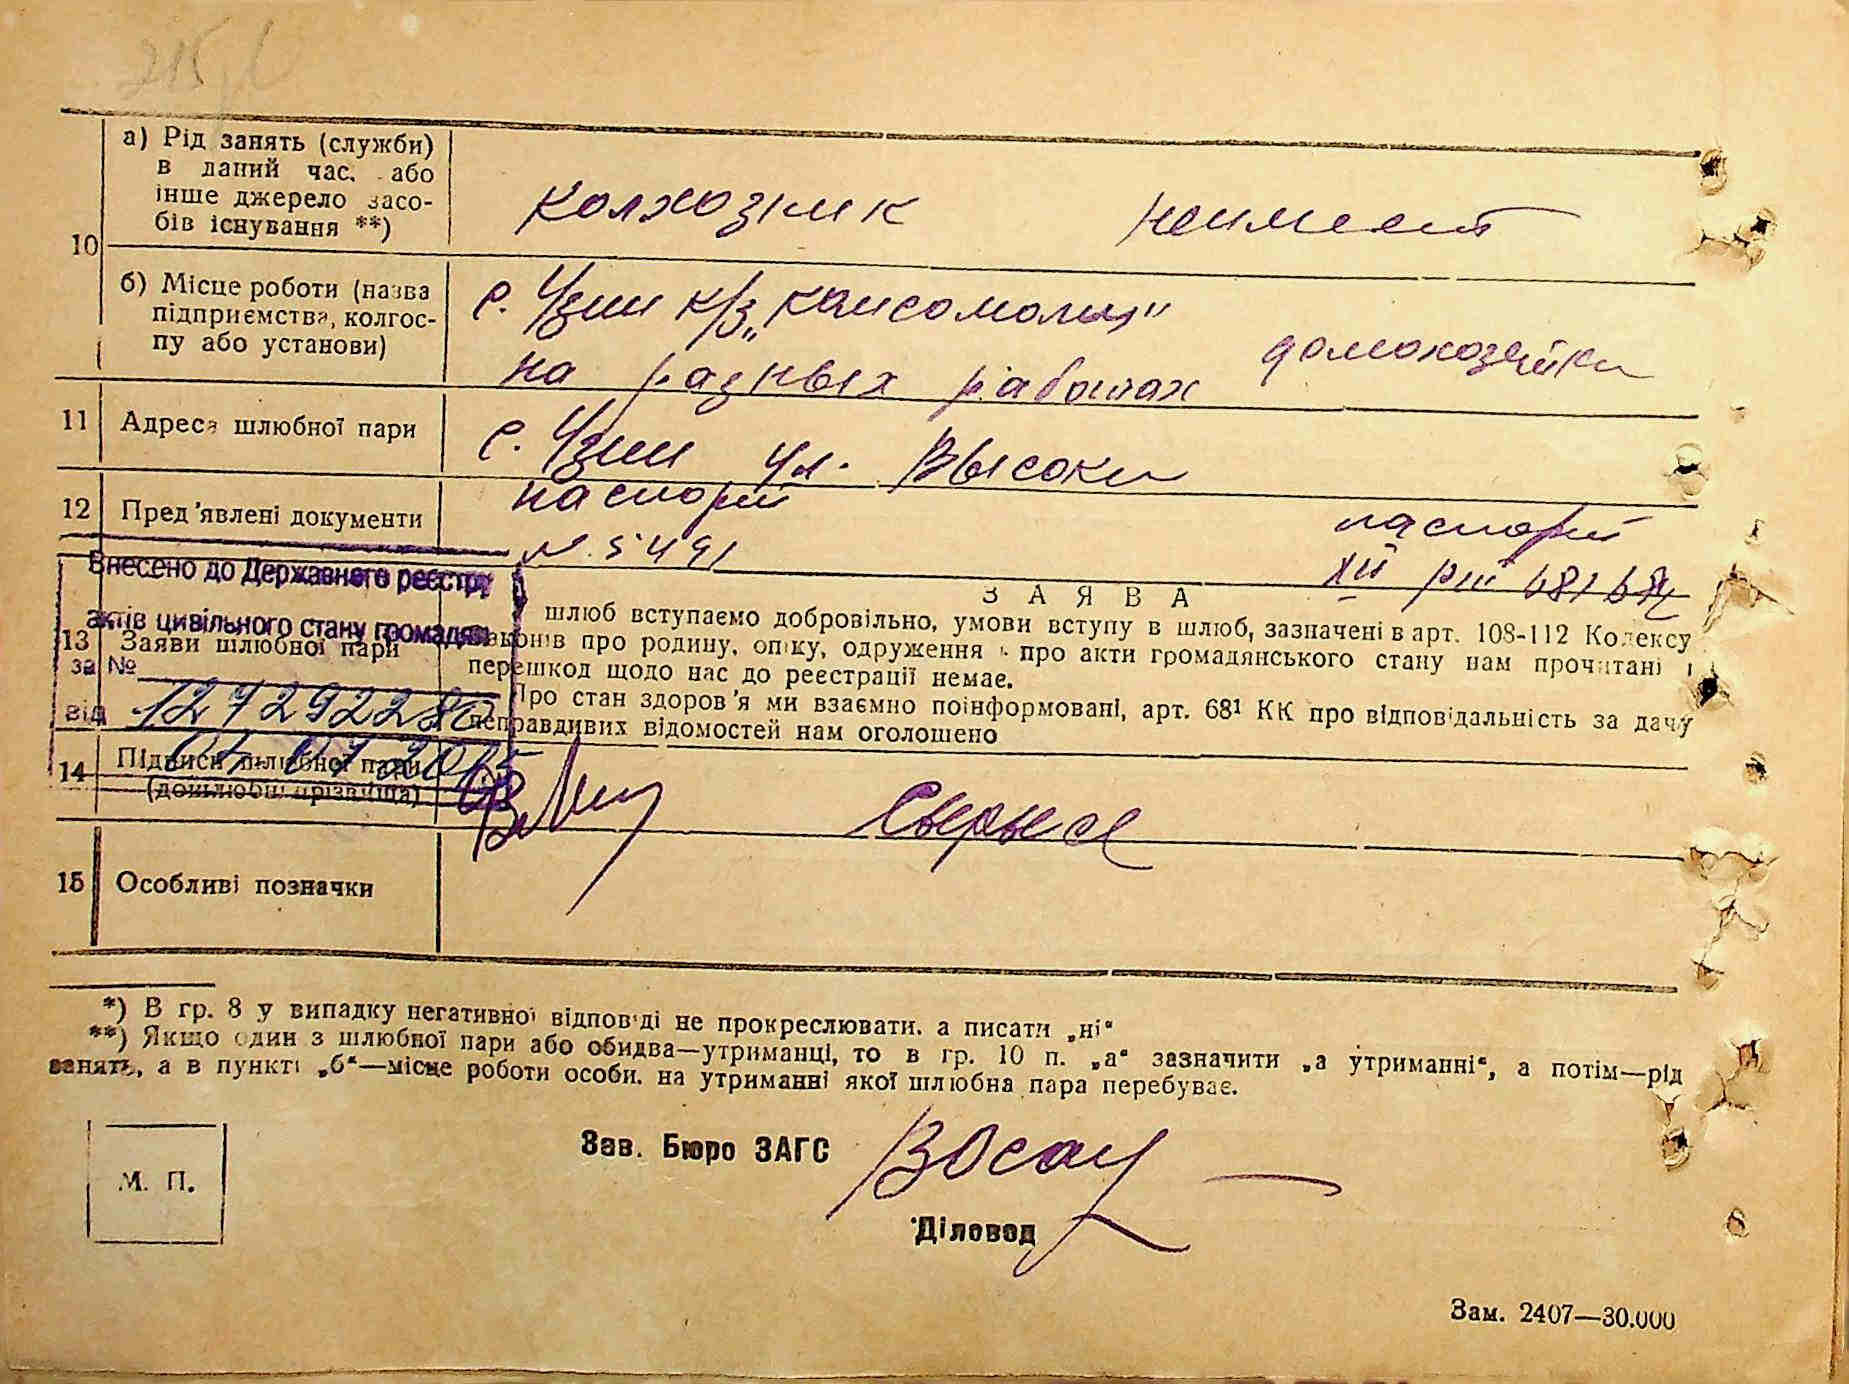 215
10
а) Рід занять (служби)
в даний час, або
інше джерело засо-
бів існування **)
колхозник неимеет
б) Місце роботи (назва
підприємства, колгос-
пу або установи)
с. Узин к/з „комсомолец"
на разных работах домохозяйка
11 Адреса шлюбної пари
с. Узин ул. Высоки
12 Пред'явлені документи
паспорт паспорт
№ 5491 XII
Внесено до Державного реєстру
актів цивільного стану громадян
за №
від
З А Я В А
13 Заяви шлюбної пари
шлюб вступаємо добровільно, умови вступу в шлюб, зазначені в арт. 108-112 Кодексу
законів про родину, опіку, одруження і про акти громадянського стану нам прочитані і
перешкод щодо нас до реєстрації немає.
Про стан здоров'я ми взаємно поінформовані, арт. 68¹ КК про відповідальність за дачу
неправдивих відомостей нам оголошено
14 Підписи шлюбної пари
(дошлюбні прізвища)
15 Особливі позначки
*) В гр. 8 у випадку негативної відповіді не прокреслювати, а писати „ні"
**) Якщо один з шлюбної пари або обидва—утриманці, то в гр. 10 п. „а" зазначити „а утриманні", а потім—рід
занять, а в пункті „б"—місце роботи особи, на утриманні якої шлюбна пара перебуває.
М. П.
Зав. Бюро ЗАГС
Діловод
Зам. 2407—30.000